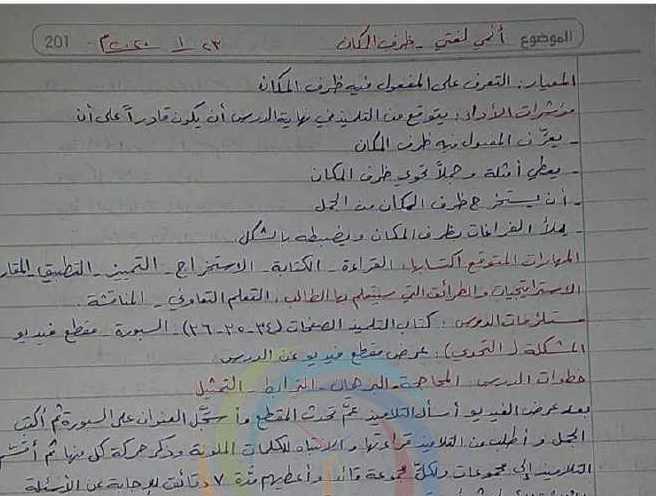 الموضوع أنمي لغتي - ظرف المكان ٢٣ / ١ / ٢٠٢٠م 201
المعيار: التعرف على المفعول فيه ظرف المكان
مؤشرات الأداء: يتوقع من التلميذ في نهاية الدرس أن يكون قادراً على أن
- يعرّف المفعول فيه ظرف المكان
- يعطي أمثلة وجملاً تحوي ظرف المكان
- أن يستخرج ظرف المكان من الجمل
- يملأ الفراغات بظرف المكان ويضبطه بالشكل
المهارات المتوقع اكتسابها: القراءة - الكتابة - الاستخراج - التمييز - التطبيق - المقار
الاستراتيجيات والطرائق التي سيتعلم بها الطالب: التعلم التعاوني - المناقشة.
مستلزمات الدرس: كتاب التلميذ الصفحات (٣٤-٢٥-٢٦) - السبورة - مقطع فيديو
المشكلة (التحدي): عرض مقطع فيديو عن الدرس
خطوات الدرس: المحاجة - البرهان - الترابط - التمثيل
بعد عرض الفيديو أسأل التلاميذ عمّ تحدث المقطع وأسجّل العنوان على السبورة ثم أكتب
الجمل وأطلب من التلاميذ قراءتها والانتباه للكلمات الملونة وذكر حركة كل منها ثم أقسّم
التلاميذ إلى مجموعات ولكلّ مجموعة قائد وأعطيهم مدّة ٧ دقائق للإجابة عن الأسئلة